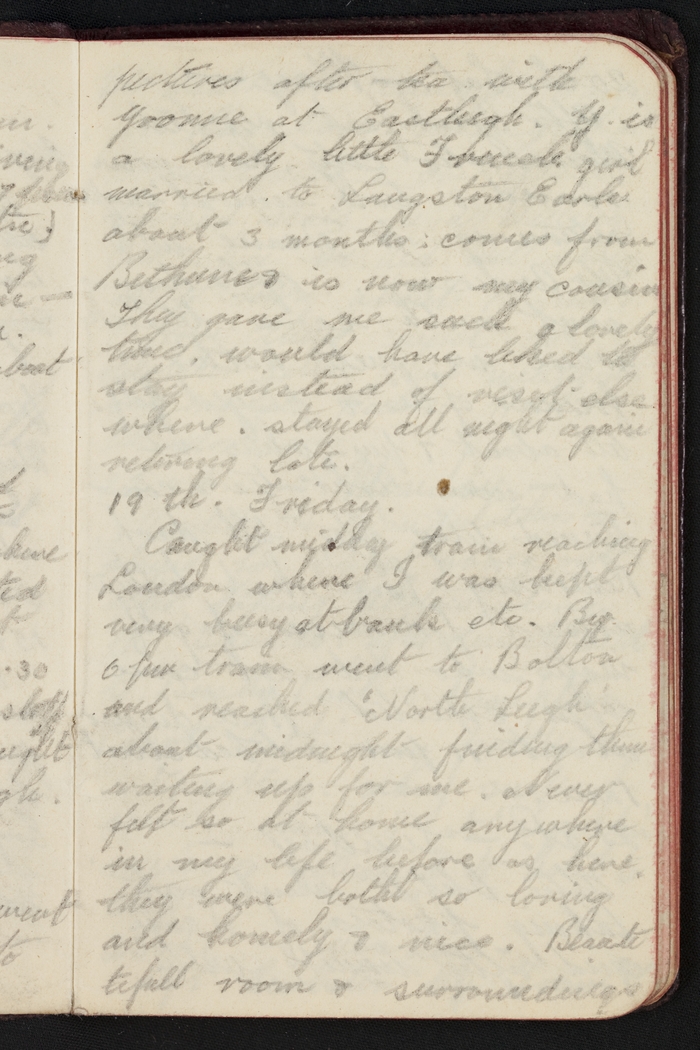 pictures after tea with
Yvonne at Eastleigh. Y. is
a lovely little French girl
married to Langston Earle
about 3 months: comes from
Bethune & is now my cousin
They gave me such a lovely
time. would have liked to
stay instead of visit else
where. stayed all night again
retiring late.
19th. Friday.
Caught midday train reaching
London where I was kept
very busy at bank etc. By
6 pm train went to Bolton
and reached 'North Leigh'
about midnight finding them
waiting up for me. Never
felt so at home anywhere
in my life before as here.
they were both so loving
and homely & nice. Beau
tifull room & surroundings